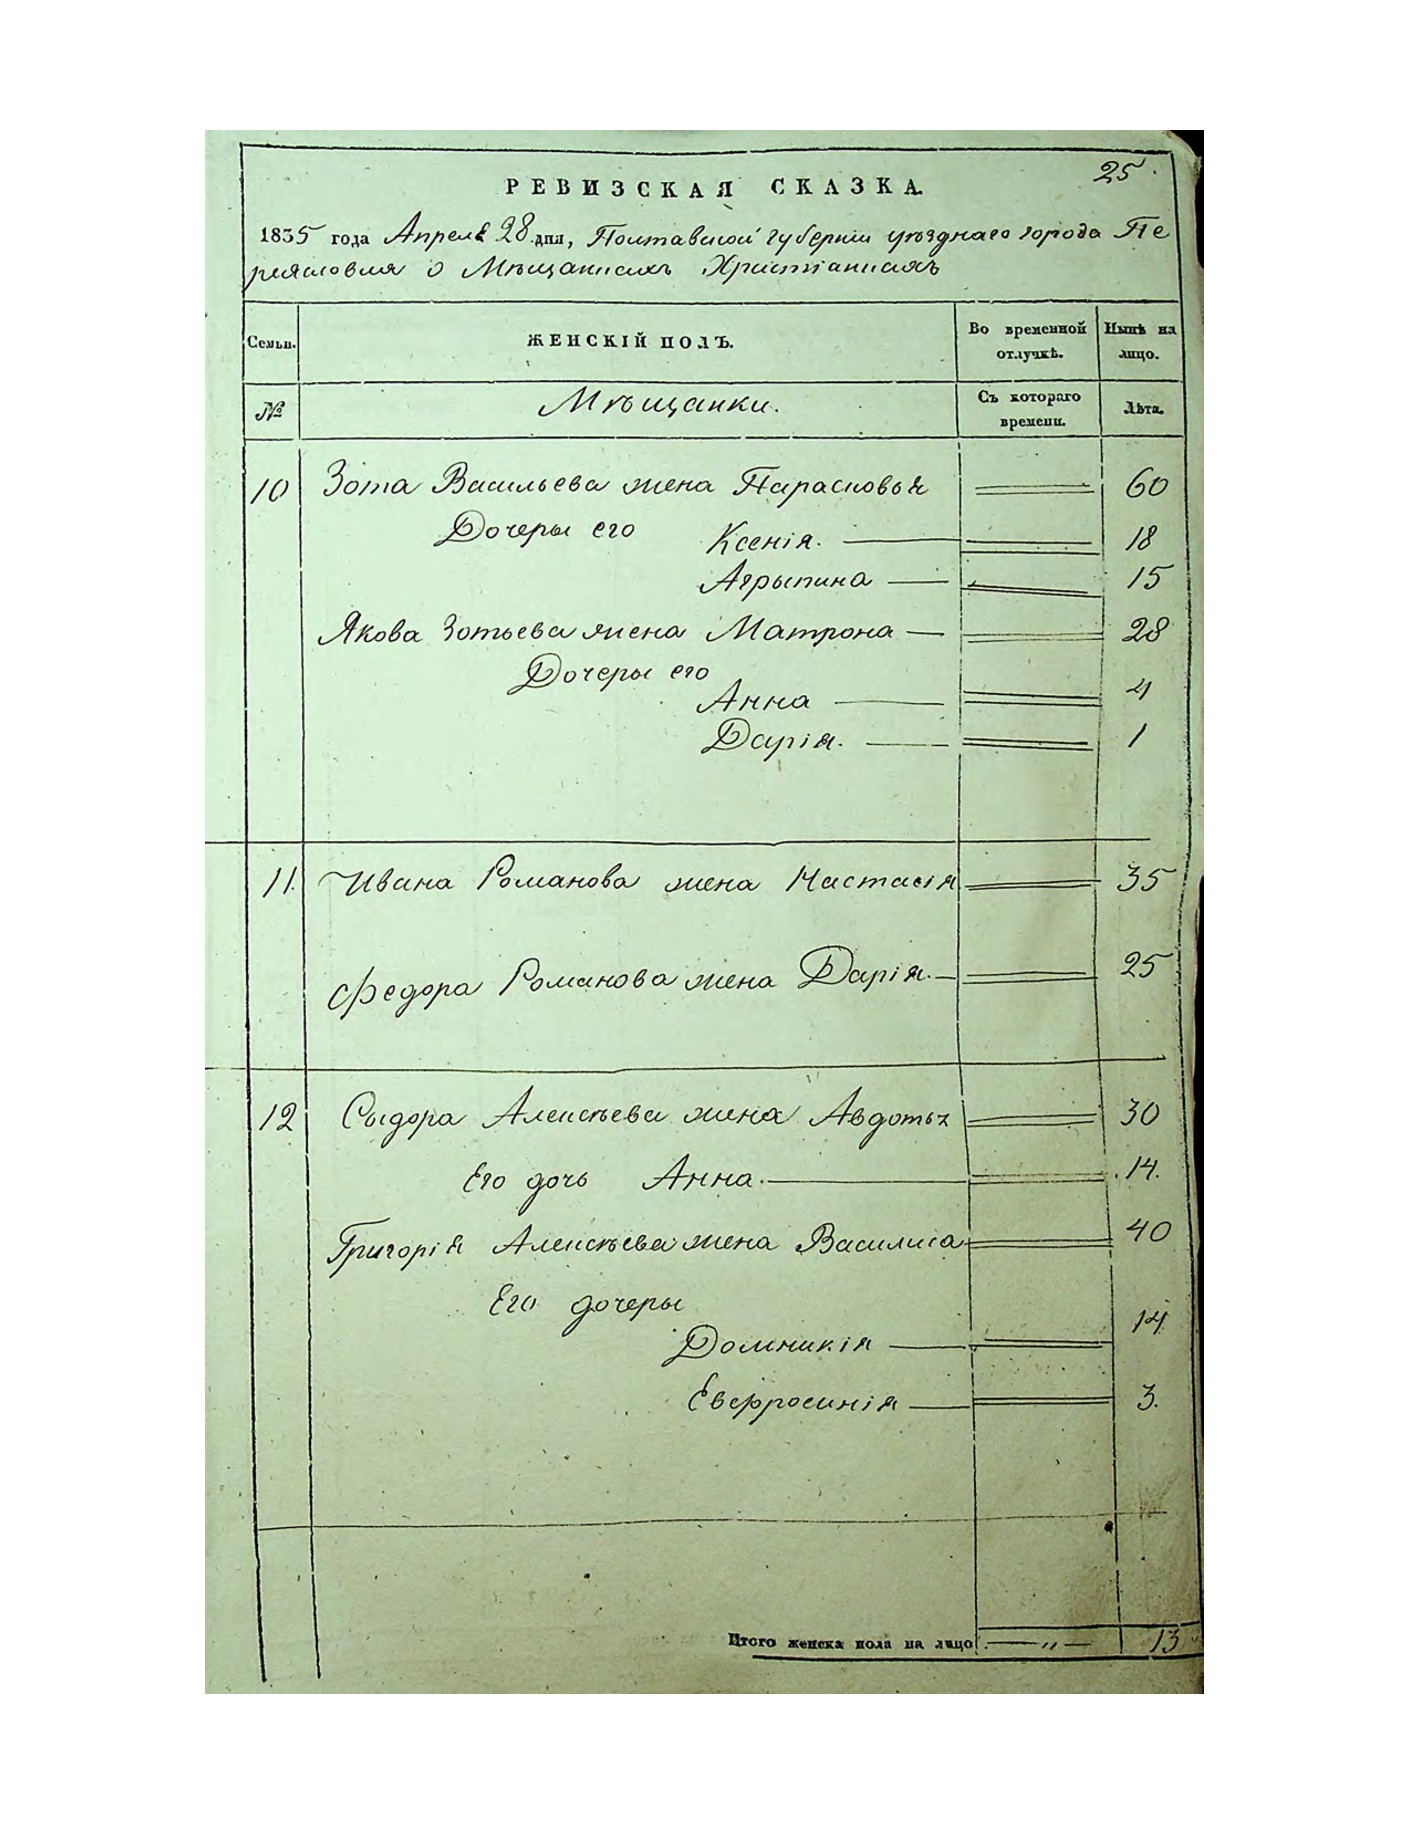 25.
РЕВИЗСКАЯ СКАЗКА.
1835 года Апреля 28 дня, Полтавской губернии уѣзднаго города Пе
реяславля о Мѣщанскихъ Христіанскихъ
Семьи. ЖЕНСКІЙ ПОЛЪ. Во временной отлучкѣ. Нынѣ на лицо.
№ Мѣщанки. Съ котораго времени. Лѣта.
10 Зота Васильева жена Парасковья 60
Дочеры его Ксенія. 18
Агрыпина 15
Якова Зотьева жена Матрона 28
Дочеры его
Анна 4
Дарія. 1
11. Ивана Романова жена Настасія 35
Федора Романова жена Дарія. 25
12 Сыдора Алексѣева жена Авдотья 30
Его дочь Анна. 14.
Григорія Алексѣева жена Василиса 40
Его дочеры
Домникія 14
Евфросинія 3.
Итого женска пола на лицо 13